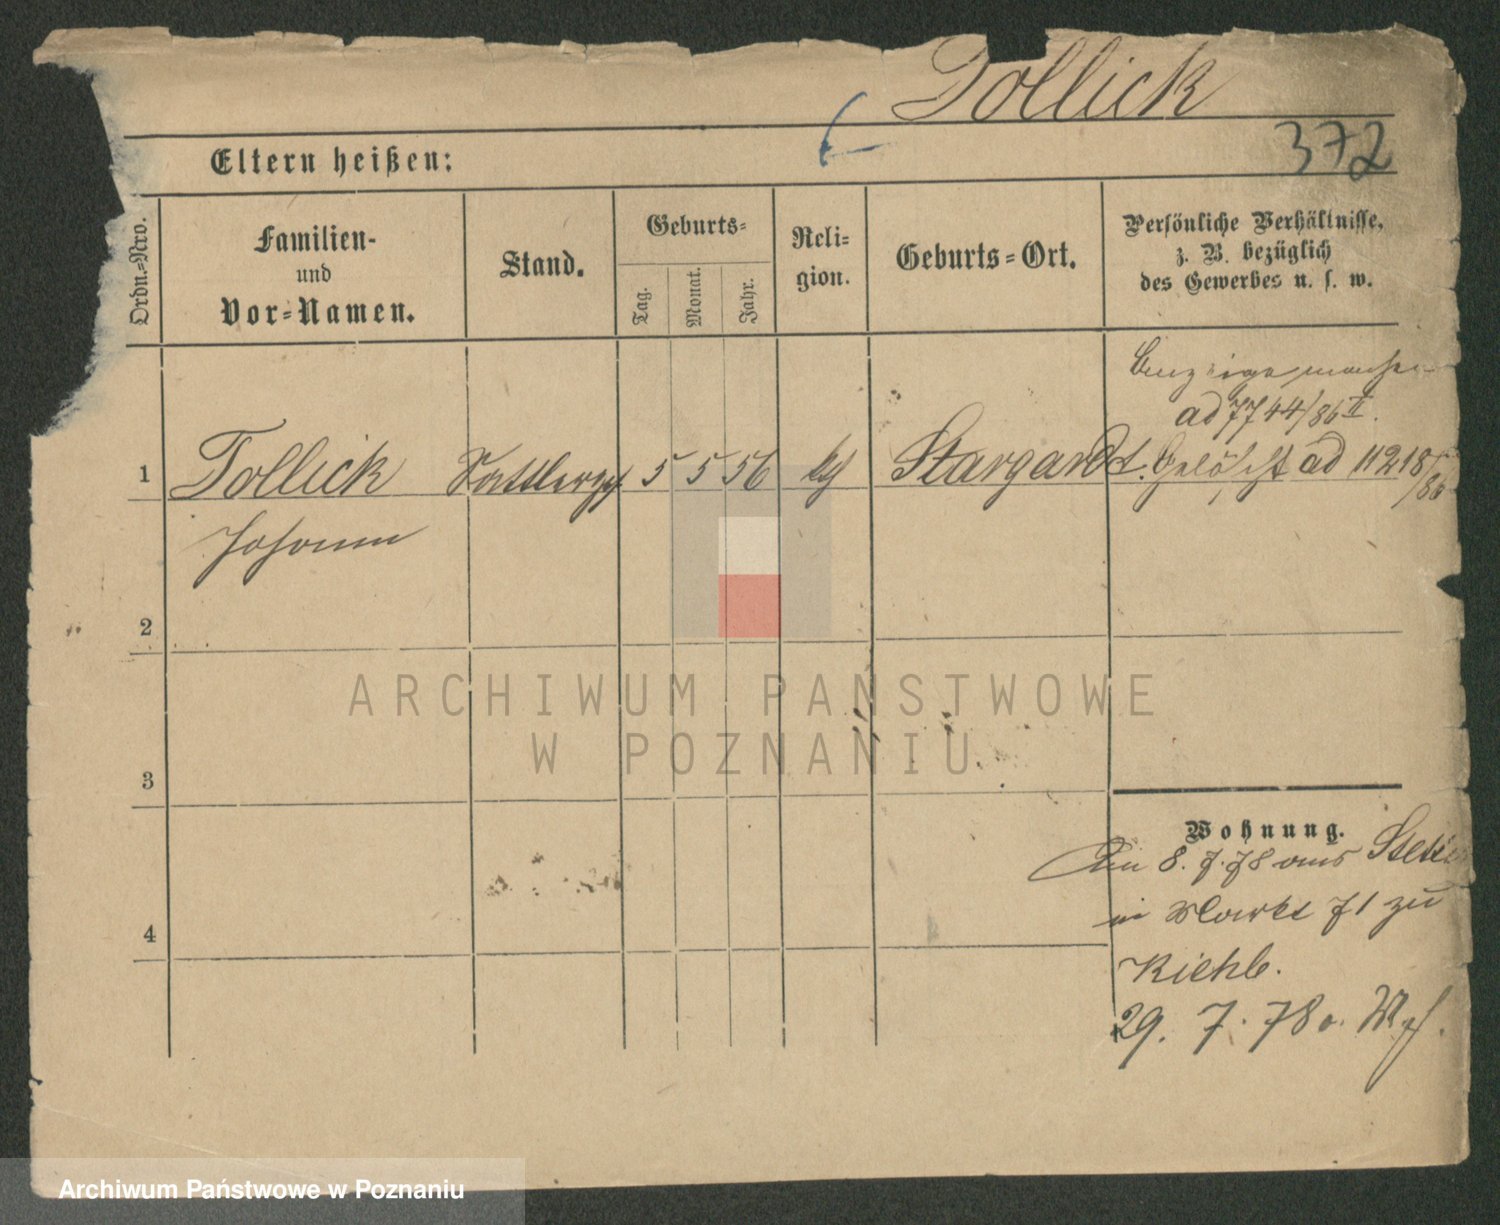 Tollick
372
Eltern heißen:
Ordn.-Nro.
Familien-
und
Vor-Namen.
Stand.
Geburts-
Tag.
Monat.
Jahr.
Reli-
gion.
Geburts-Ort.
Persönliche Verhältnisse,
z. B. bezüglich
des Gewerbes u. s. w.
ad 7744/86 II.
1 Tollick Sattlerges 5 5 56 Stargardt. Gelöscht ad 11218/86
Johann
2
ARCHIWUM PAŃSTWOWE
W POZNANIU
3
Wohnung.
8. 7. 78 aus Stettin
in Markt 71 zu
Kiehl.
4
29. 7. 78
Archiwum Państwowe w Poznaniu